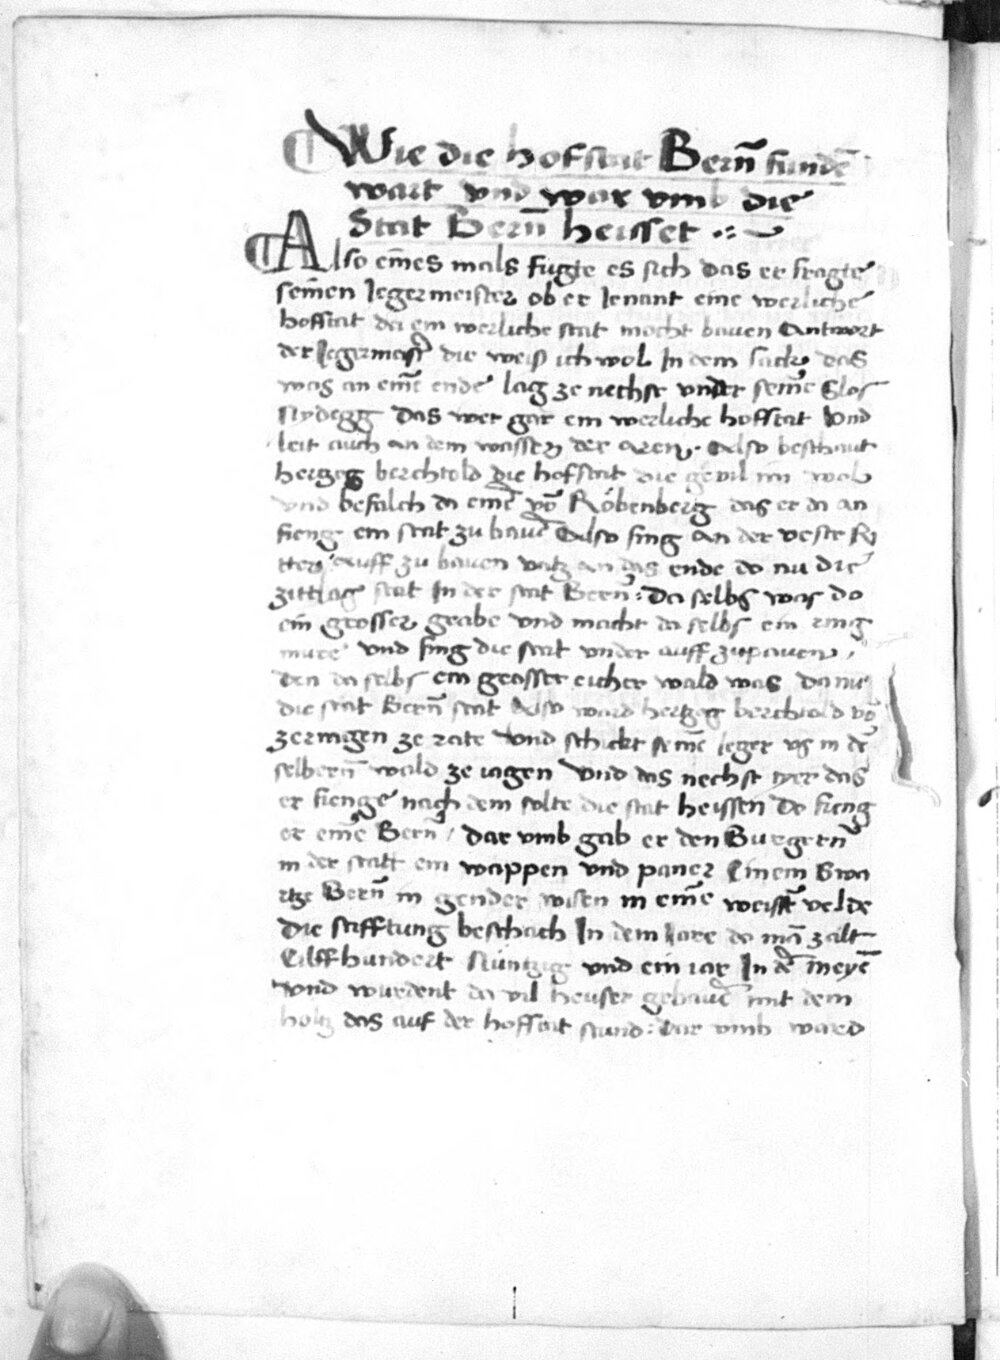 Wie die hofstat Bern̄ fundē
wart vnd war vmb die
Stat Bern̄ heisset
Also eins̄ mals fugte es sich das er fragte
seinen Jegermeister ob er Jenant eine werliche
hoffstat da ein werliche stat mocht bauen Antwort
der Jegermeist̄ die weiß ich wol In dem sack das
was an eine ende lag ze nechst vnder seine Slos
Nydegg das wer gar ein werliche hoffstat vnd
leit auch an dem wasser der aren. Also beschaut
hertzog berchtold die hofstat die geuil im wol
vnd befalch da eine vō Röbenberg das er da an
fieng ein stat zu bauē Also fing an der veste Ri
tter auff zu bauen vntz an das ende do nu die
zittlog stat In der stat Bern̄: Da selbs was do
ein grosser grabe vnd macht da selbs ein ring
mure vnd fing die stat vnder auff zupauen,
den da selbs ein grosser eicher wald was da nu
die stat Bern̄ stat Also ward hertzog berchtold vō
zeringen ze rate vnd schickt seine Jeger vs in dē
selbern̄ wald ze iagen vnd das nechst tyer das
er fienge nach dem solte die stat heissen Do fieng
er eine Bern̄ / Dar vmb gab er den Burgern̄
in der statt ein wappen vnd paner Einem Swa
rtze Bern̄ in gender wisen in eine weissē velde
Die stifftung beschach In dem Jare do mā zalt
Eilffhundert Nüntzig vnd ein iar In dē Meyē
vnd wurdent da vil heuser gebauē mit dem
holtz das auf der hoffstat stund: Dar vmb ward